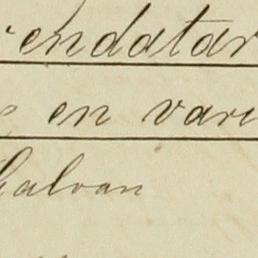 endatar
en vari
Galvan